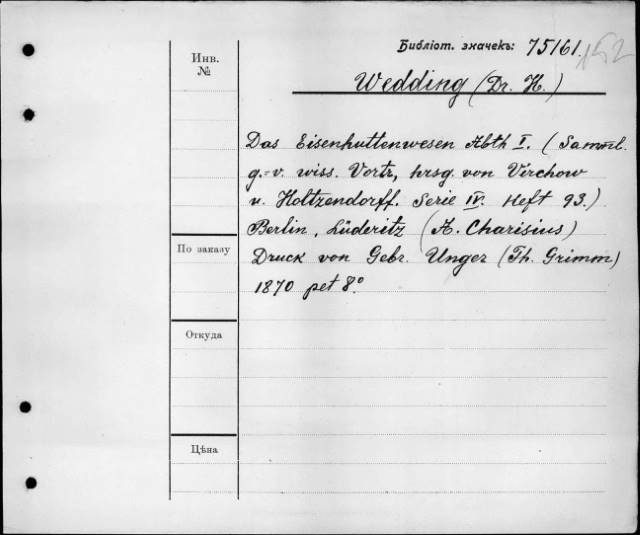 Библіот. значекъ: 75161. 152
Инв.
№
Wedding (Dr. H.)
Das Eisenhuttenwesen Abth I. (Samml.
g.-v. wiss. Vortr, hrsg. von Virchow
u. Holtzendorff. Serie IV. Heft 93.)
Berlin, Lüderitz (A. Charisius)
По заказу
Druck von Gebr. Unger (Th. Grimm)
1870 pet 8°
Откуда
Цѣна